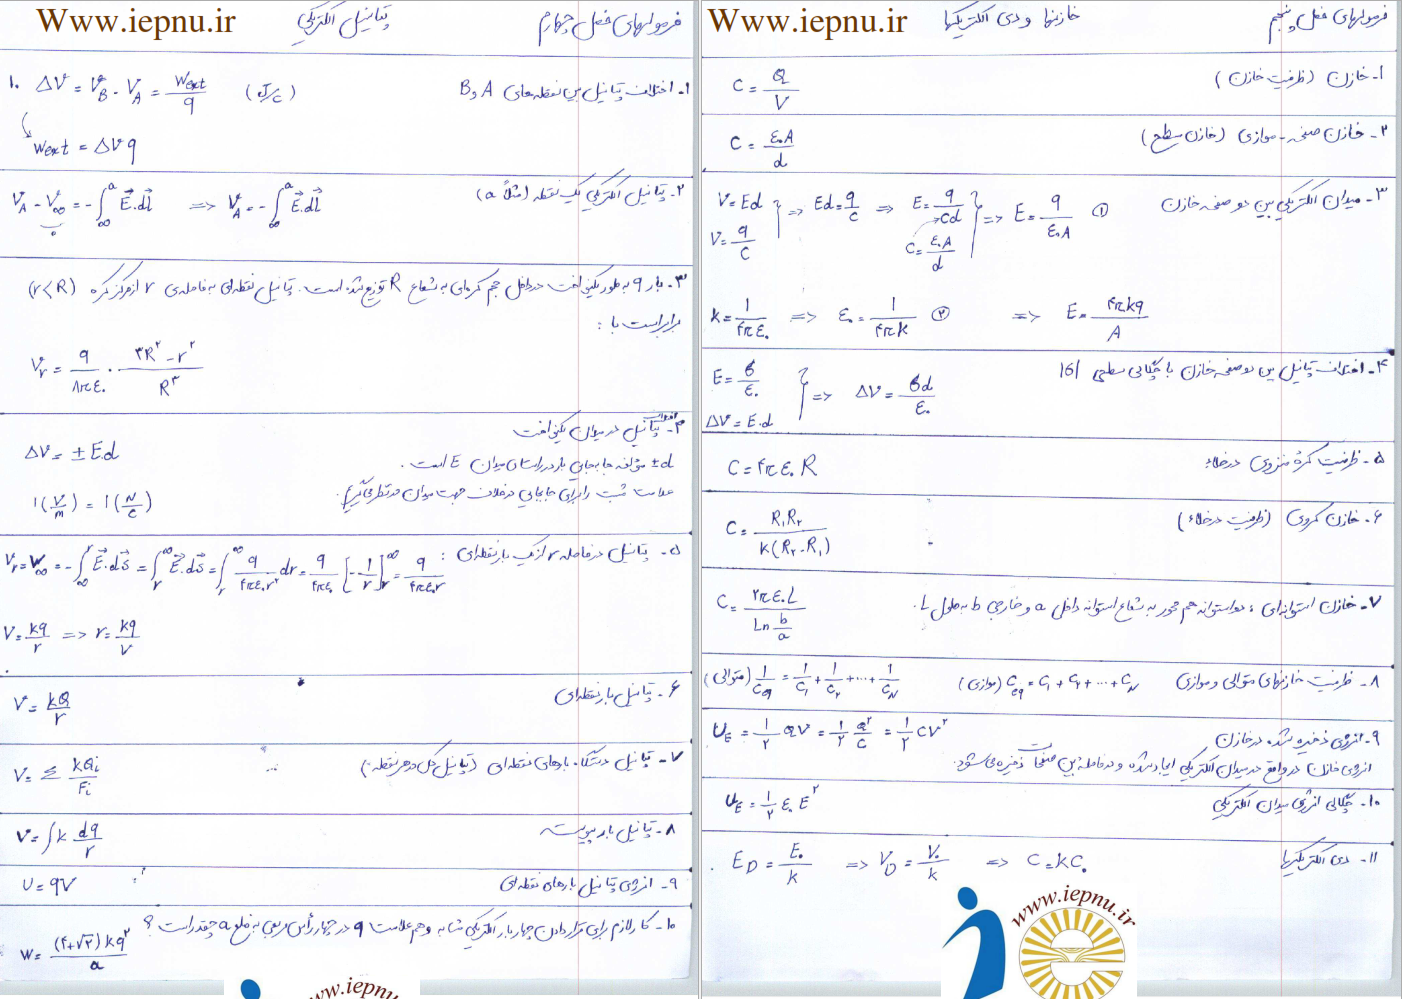 Www.iepnu.ir
فرمولهای فصل چهارم
پتانسیل الکتریکی
۱- اختلاف پتانسیل بین نقطه‌های A و B
۱. ΔV = V_B - V_A = Wext/q (J/C)
Wext = ΔV q
۲- پتانسیل الکتریکی یک نقطه (مثلاً a)
V_A - V_∞ = -∫_∞^a E⃗.dl⃗ => V_A = -∫_∞^a E⃗.dl⃗
۳- بار q به طور یکنواخت در داخل حجم کره‌ای به شعاع R توزیع شده است. پتانسیل نقطه‌ای به فاصله‌ی r از مرکز کره (r<R)
برابر است با :
V_r = q/۸πε. · (۳R^۲ - r^۲)/R^۳
۴- اختلاف پتانسیل در میدان یکنواخت
ΔV = ± E.d
±d مؤلفه جابه‌جایی بار در راستای میدان E است.
علامت مثبت را برای جابجایی در خلاف جهت میدان در نظر می‌گیریم.
۱(V/m) = ۱(N/C)
۵- پتانسیل در فاصله r از یک بار نقطه‌ای :
V_r - V_∞ = -∫_∞^r E⃗.ds⃗ = ∫_r^∞ E⃗.ds⃗ = ∫_r^∞ q/۴πε.r^۲ dr = q/۴πε. [-۱/r]_r^∞ = q/۴πε.r
V = kq/r => r = kq/V
۶- پتانسیل بار نقطه‌ای
V = kQ/r
۷- پتانسیل دستگاه بارهای نقطه‌ای (پتانسیل کل در هر نقطه)
V = Σ kQi/ri
۸- پتانسیل بار پیوسته
V = ∫ k dq/r
۹- انرژی پتانسیل بارهای نقطه‌ای
U = qV
۱۰- کار لازم برای قرار دادن چهار بار الکتریکی مشابه و هم علامت q در چهار رأس مربعی به ضلع a چقدر است؟
W = (۴+√۲)kq^۲/a
www.iepnu
Www.iepnu.ir
فرمولهای فصل پنجم
خازنها و دی الکتریکها
۱- خازن (ظرفیت خازن)
C = Q/V
۲- خازن صفحه - موازی (خازن مسطح)
C = ε.A/d
۳- میدان الکتریکی بین دو صفحه خازن
V = Ed
V = q/C
=> Ed = q/C => E = q/Cd
C = ε.A/d
=> E = q/ε.A ①
k = ۱/۴πε. => ε. = ۱/۴πk ② => E = ۴πkq/A
۴- اختلاف پتانسیل بین دو صفحه خازن با چگالی سطحی |σ|
E = σ/ε.
ΔV = E.d
=> ΔV = σd/ε.
۵- ظرفیت کرهٔ منزوی در خلاء
C = ۴πε.R
۶- خازن کروی (ظرفیت در خلاء)
C = R₁R₂/k(R₂-R₁)
۷- خازن استوانه‌ای : دو استوانه هم محور به شعاع استوانه داخلی a و خارجی b به طول L.
C = ۲πε.L/Ln b/a
۸- ظرفیت خازنهای متوالی و موازی
(موازی) Ceq = C₁ + C₂ + ... + C_N
(متوالی) ۱/Ceq = ۱/C₁ + ۱/C₂ + ... + ۱/C_N
۹- انرژی ذخیره شده در خازن
U_E = ۱/۲ QV = ۱/۲ Q^۲/C = ۱/۲ CV^۲
انرژی خازن در واقع در میدان الکتریکی ایجاد شده و در فاصله بین صفحات ذخیره می‌شود.
۱۰- چگالی انرژی میدان الکتریکی
u_E = ۱/۲ ε. E^۲
۱۱- دی الکتریکها
E_D = E./k => V_D = V./k => C = kC.
www.iepnu.ir